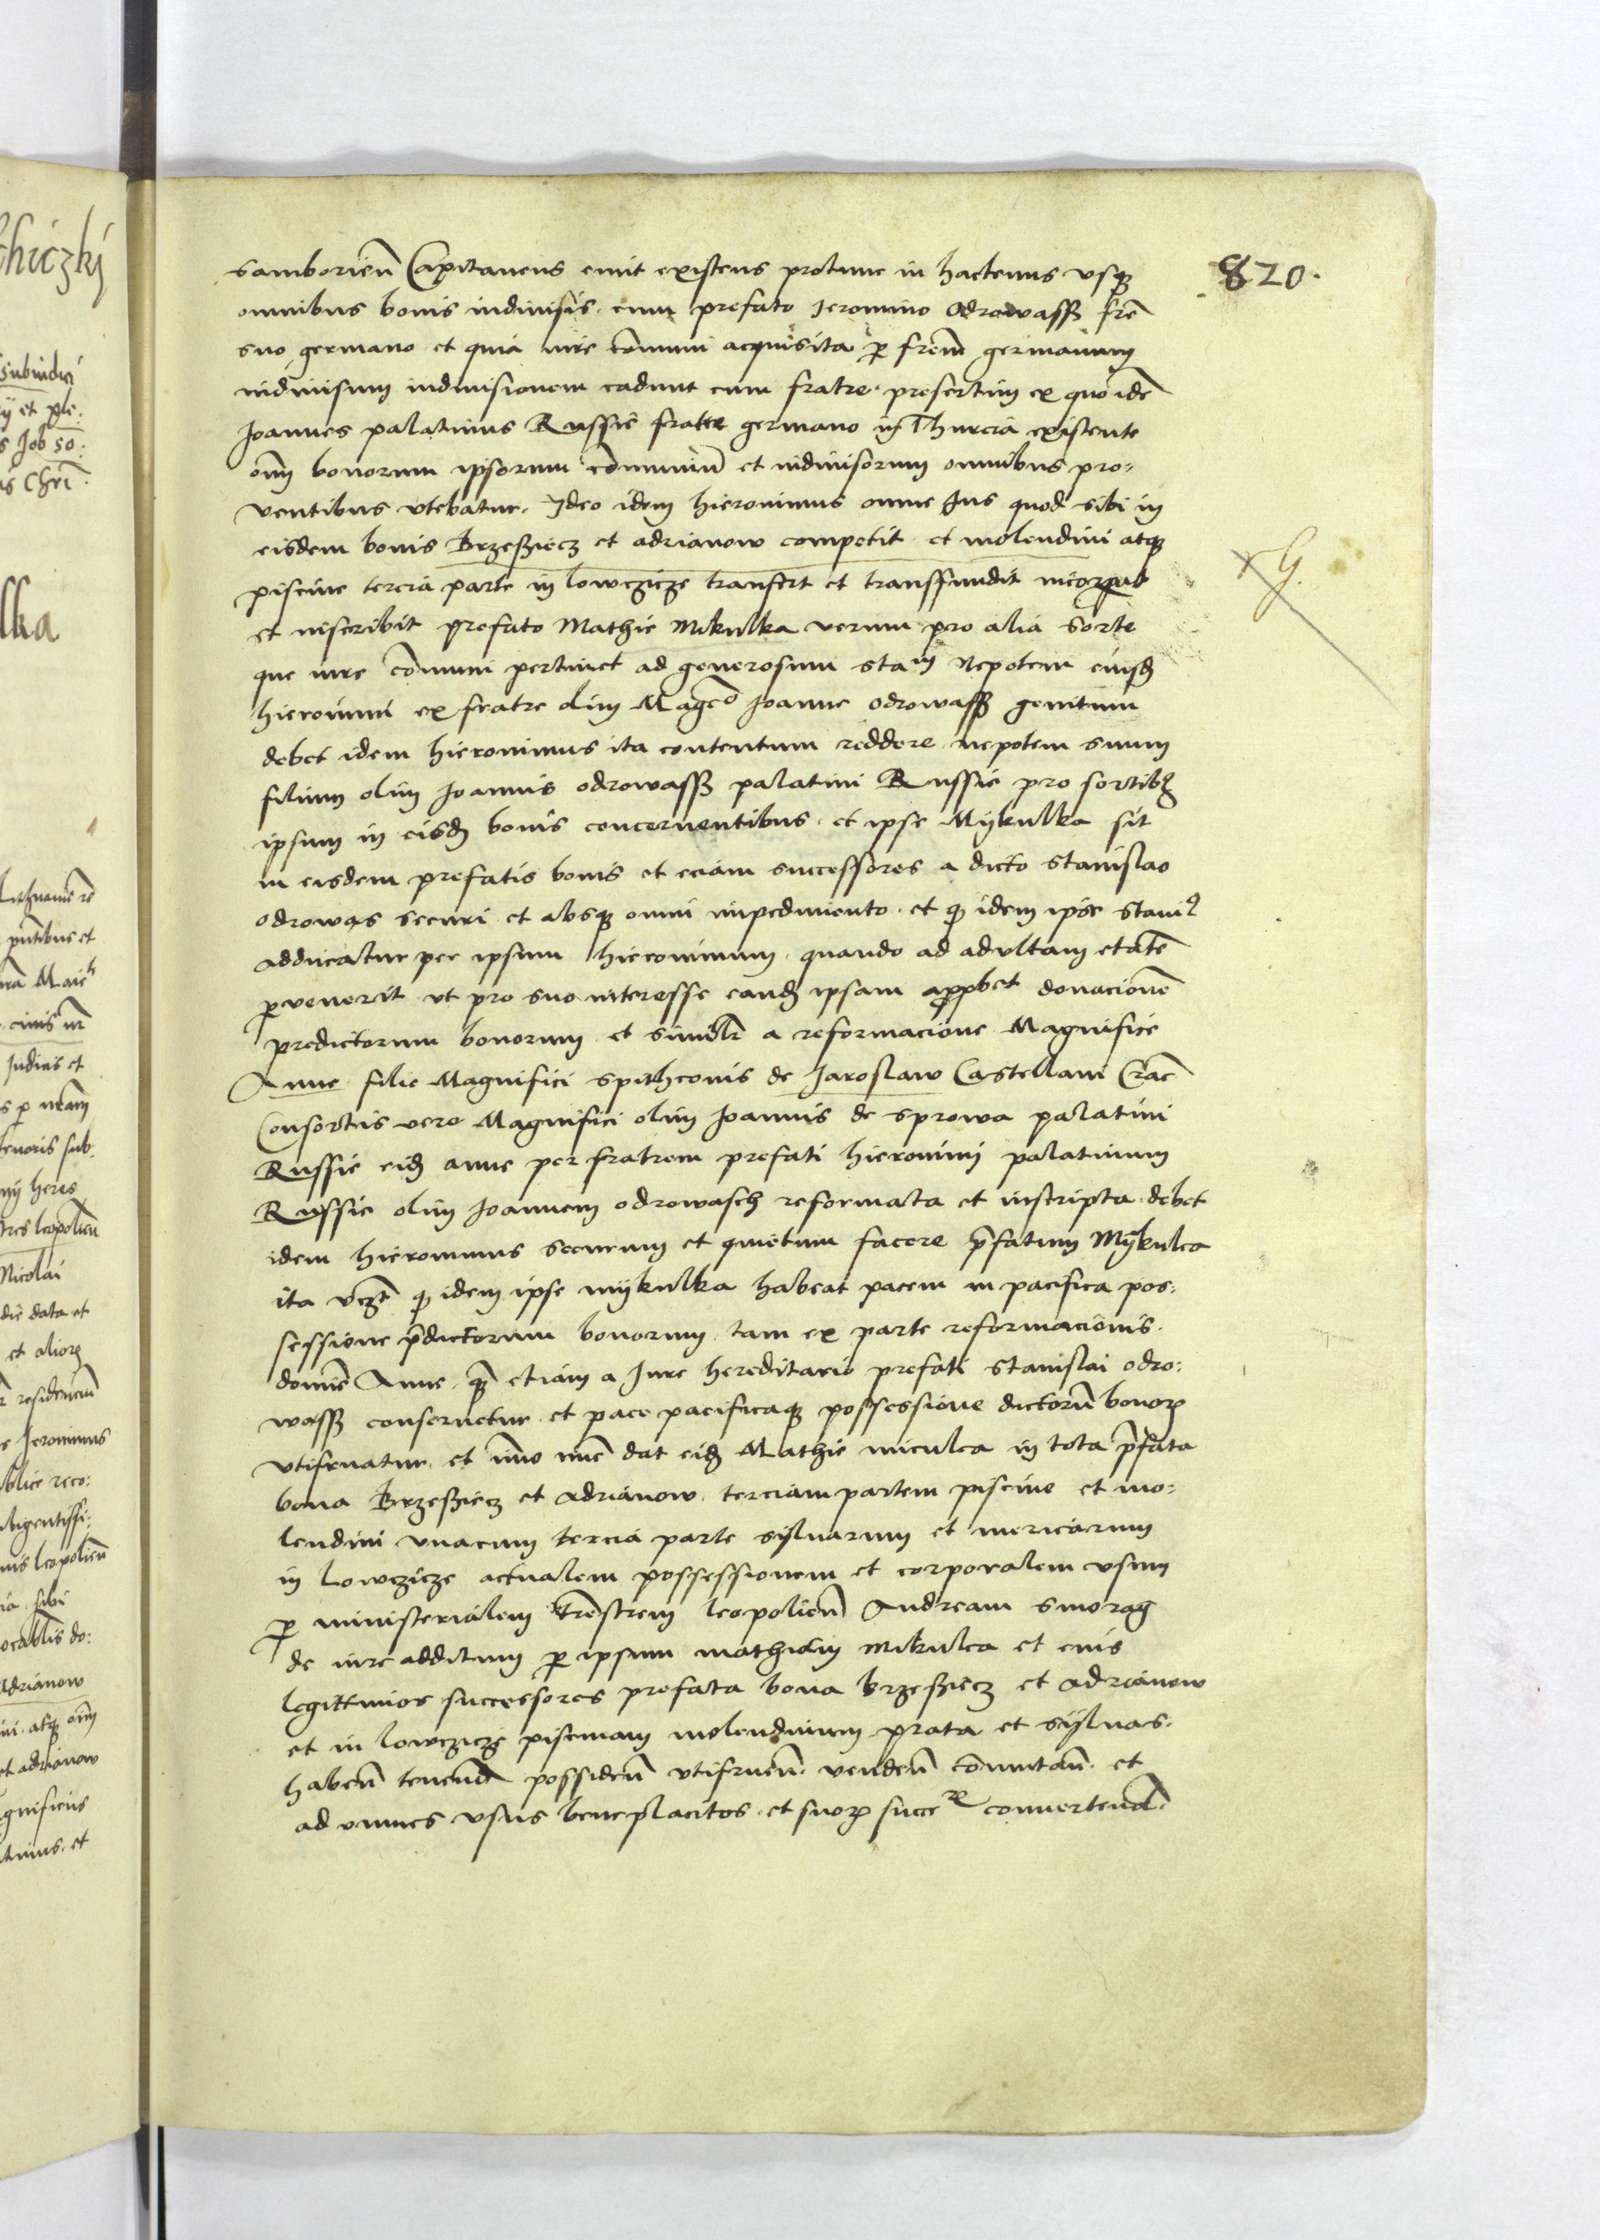 820.
samborien̄ Capitaneus emit existens protunc in hactenus vsqꝫ
omnibus bonis indiuisis cum prefato Jeronimo Odrowasß frē
suo germano et quia iure cōmuni acquisita ꝑ frem̄ germanum
indiuisum indiuisionem cadunt cum fratre presertim ex quo idē
Joannes palatinus Russie fratre germano in Thurcia existente
om̄i bonorum ipsorum cōmuniū et indiuisorum omnibus pro:
uentibus vtebatur. Ideo idem hieronimus omne Jus quod sibi in
eisdem bonis Brzesziecz et adrianow competit et molendini atqꝫ
piscine tercia parte in lowczicze transfert et transfundit incorporat
et inscribit prefato Mathie Mikulka verum pro alia sorte
que iure cōmuni pertinet ad generosum stam Nepotem eiusd
hieronimi ex fratre olim Magco Joanne odrowasß genitum
debet idem hieronimus ita contentum reddere nepotem suum
filium olim Joannis odrowasß palatini Russie pro sortibꝫ
ipsum in eisd bonis concernentibus et ipse Mykulka sit
in eisdem prefatis bonis et eciam successores a dicto stanislao
odrowas securi et absqꝫ omni impedimento et ꝙ idem ipse stanis
adducatur per ipsum hieronimum quando ad adultam etatē
ꝑvenerit vt pro suo interesse eand ipsam approbet donacionē
predictorum bonorum et similr a reformacione Magnifice
Anne filie Magnifici spithconis de Jaroslaw Castellani Crac̄
Consortis vero Magnifici olim Joannis de sprowa palatini
Russie eid anne per fratrem prefati hieronimi palatinum
Russie olim Joannem odrowasch reformata et inscripta debet
idem hieronimus securum et quietum facere p̄fatum Mykulca
ita vcꝫt ꝙ idem ipse mykulka habeat pacem in pacifica pos:
sessione p̄dictorum bonorum tam ex parte reformacionis
domine Anne qꝫ etiam a Jure hereditario prefati stanislai odro:
wasß conseruetur et pace pacificaqꝫ possessione dictorū bonoꝝ
vtifruatur et im̄o nūc dat eid Mathie miculca in tota p̄fata
bona Brzesziecz et adrianow terciam partem piscine et mo:
lendini vnacum tercia parte syluarum et mericarum
in Lowczicze actualem possessionem et corporalem vsum
ꝑ ministerialem trēstrem leopolien̄ Andream smorag
de iure additum ꝑ ipsum mathiam Mikulca et eius
legittimos successores prefata bona brzesziecz et adrianow
et in lowczicze piscinam molendinum prata et syluas
haben̄ tenend possiden̄ vtifruen̄ venden̄ cōmutan̄ et
ad omnes vsus beneplacitos et suoꝝ succeꝝ conuertend